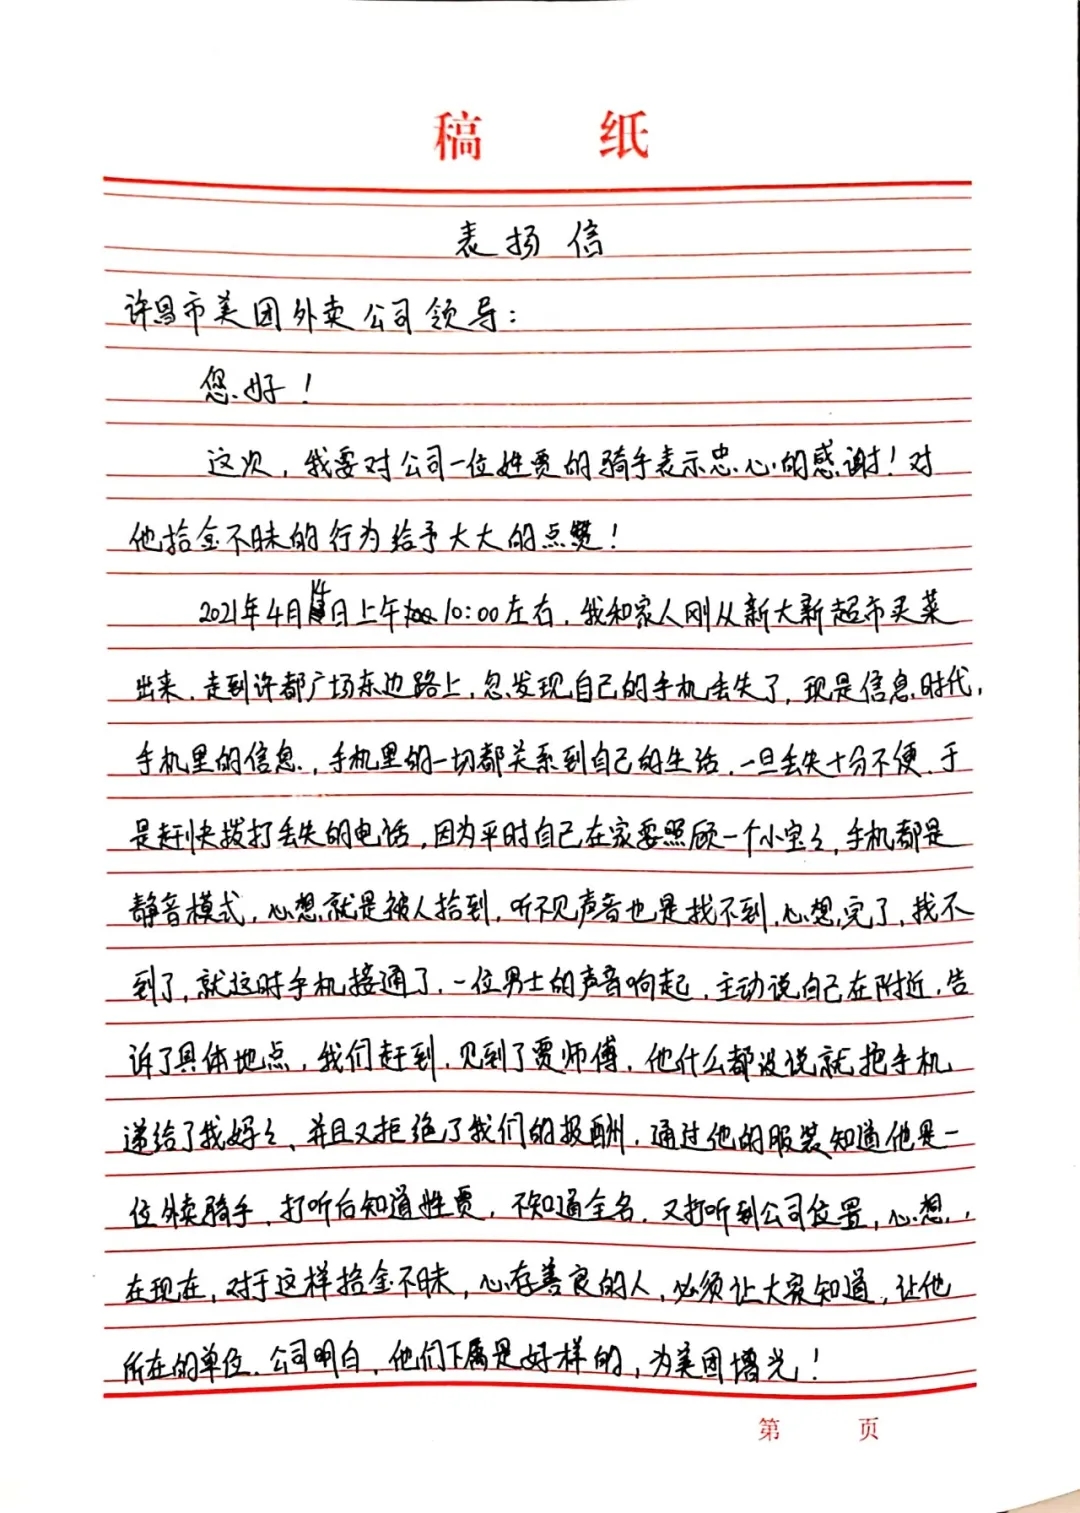 稿 纸
表扬信
许昌市美团外卖公司领导:
您好!
这次,我要对公司一位姓贾的骑手表示忠心的感谢!对
他拾金不昧的行为给予大大的点赞!
2021年4月14日上午10:00左右,我和家人刚从新大新超市买菜
出来,走到许都广场东边路上,忽发现自己的手机丢失了,现是信息时代,
手机里的信息,手机里的一切都关系到自己的生活,一旦丢失十分不便,于
是赶快拨打丢失的电话,因为平时自己在家要照顾一个小宝々,手机都是
静音模式,心想就是被人拾到,听不见声音也是找不到,心想,完了,找不
到了,就这时手机接通了,一位男士的声音响起,主动说自己在附近,告
诉了具体地点,我们赶到,见到了贾师傅,他什么都没说就把手机
递给了我妈々,并且又拒绝了我们的报酬,通过他的服装知道他是一
位外卖骑手,打听后知道姓贾,不知道全名,又打听到公司位置,心想,
在现在,对于这样拾金不昧,心存善良的人,必须让大家知道,让他
所在的单位、公司明白,他们下属是好样的,为美团增光!
第 页